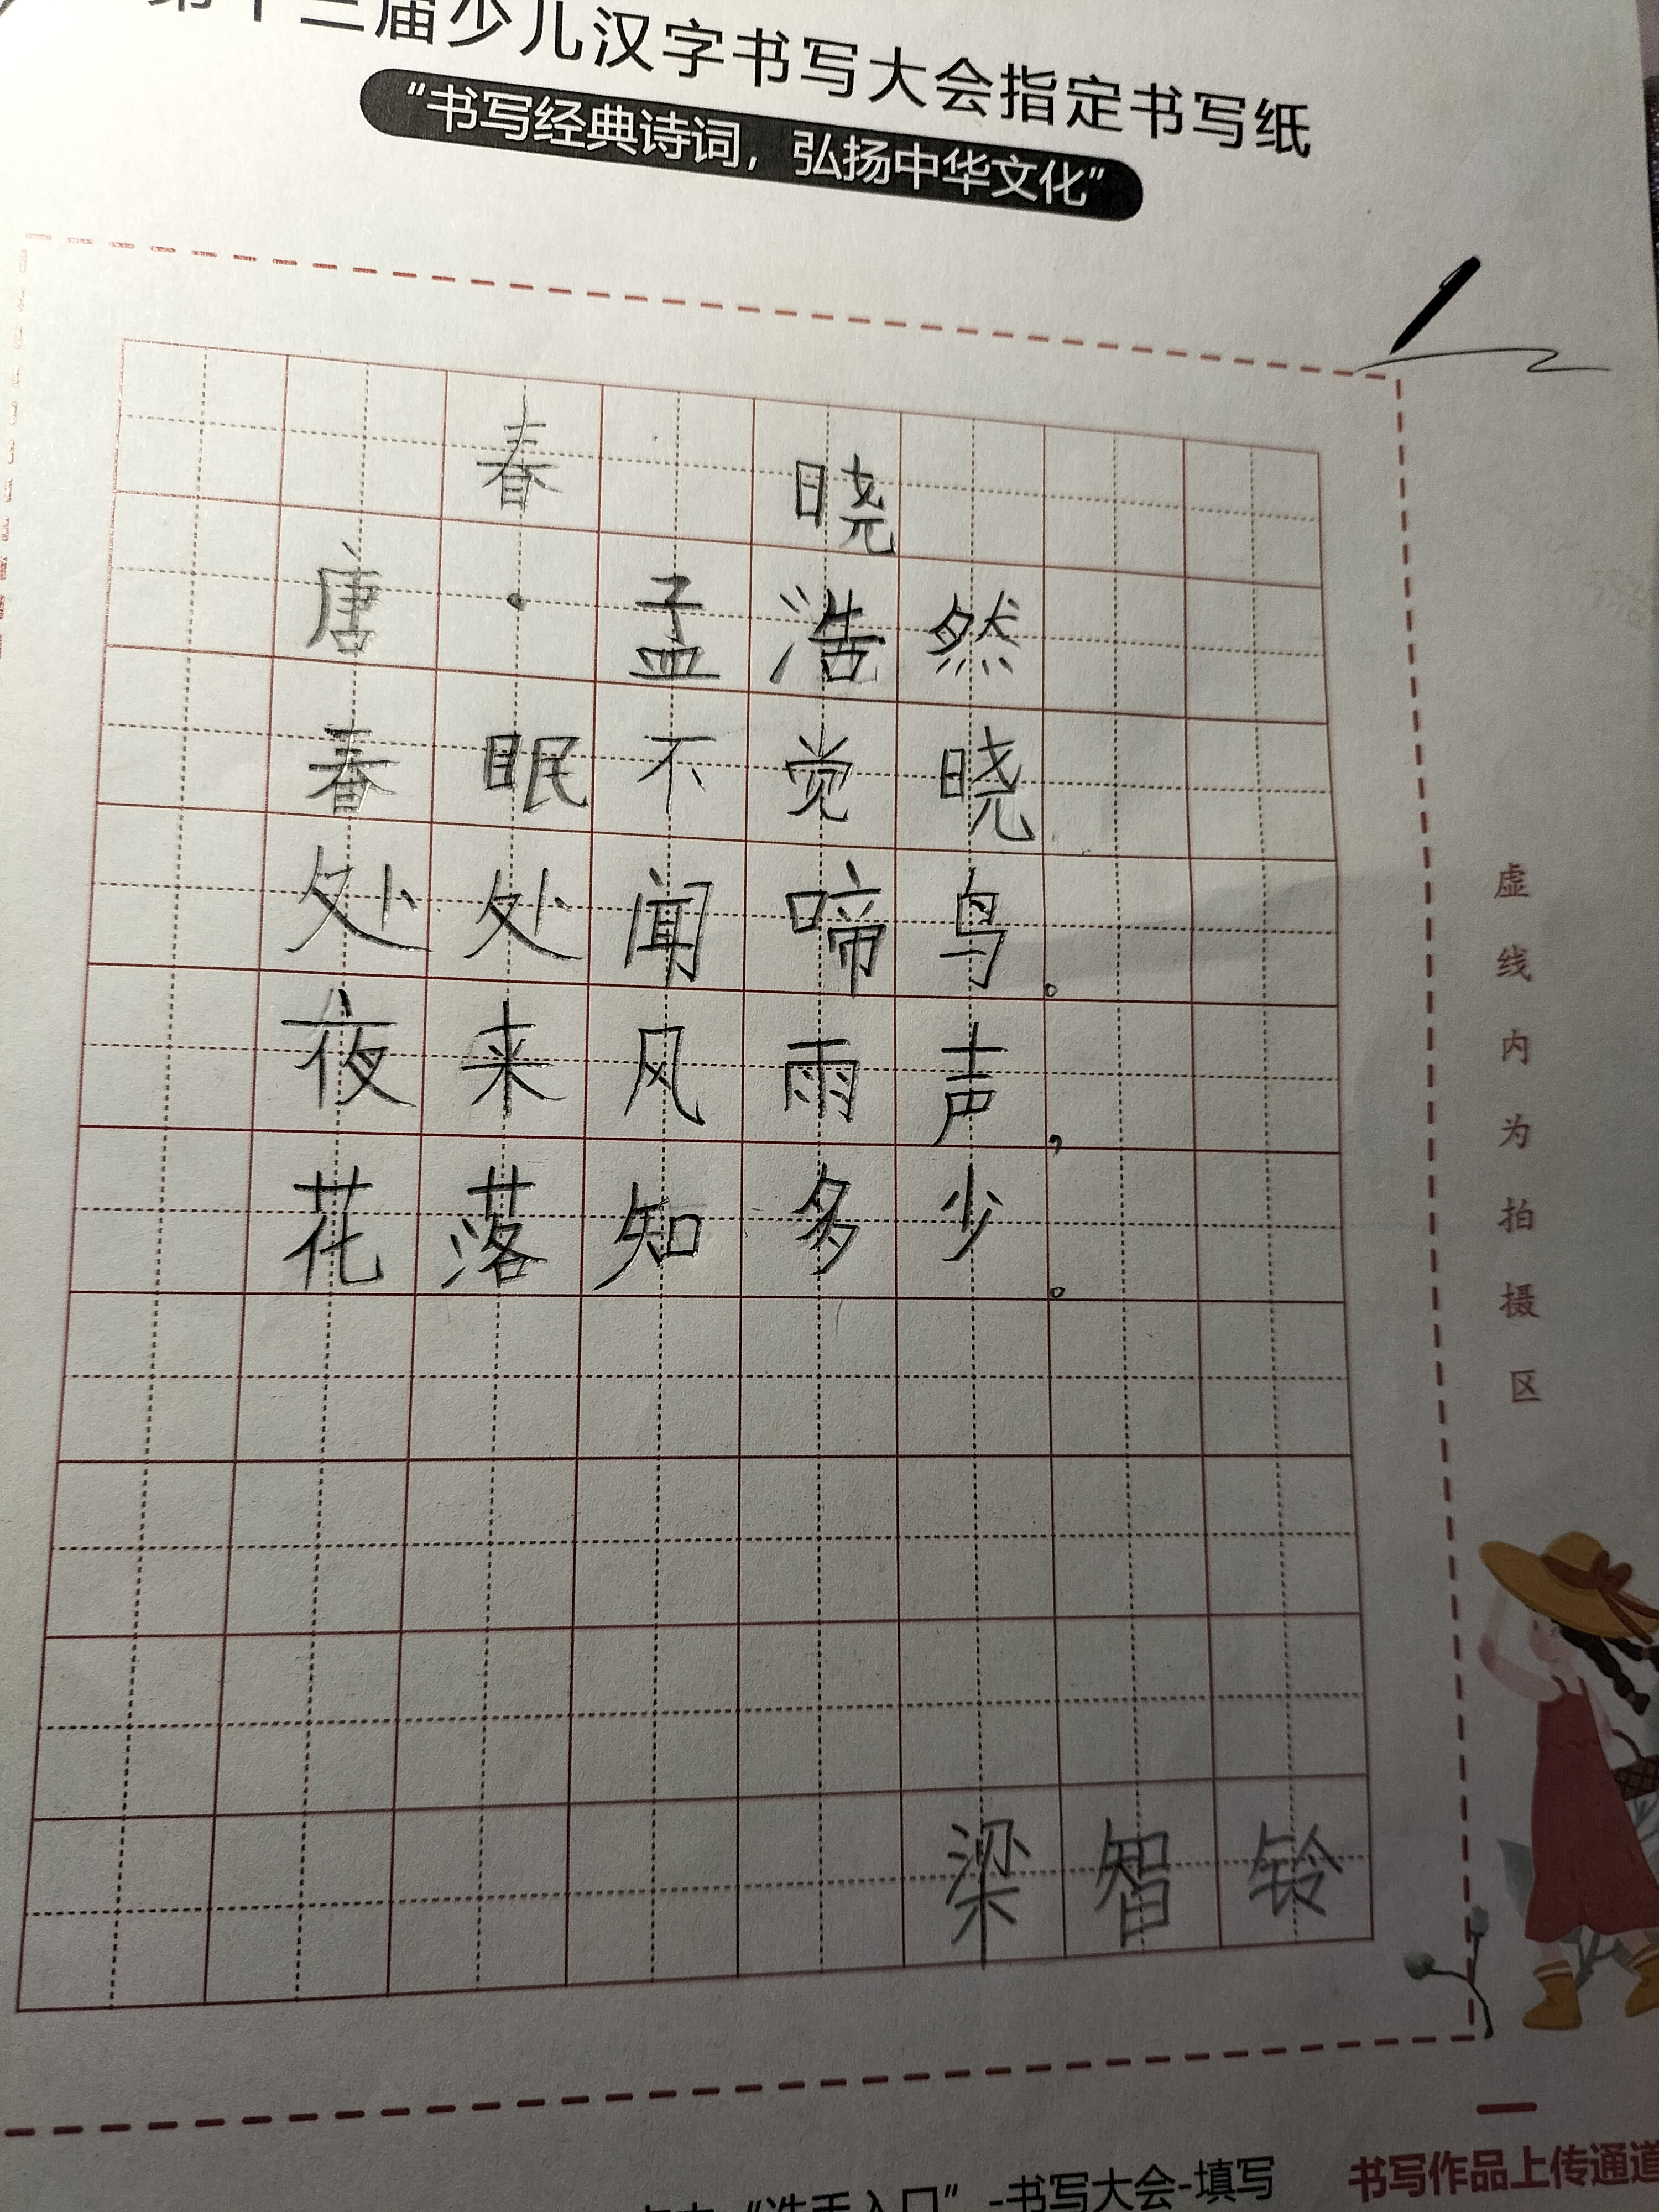 第十三届少儿汉字书写大会指定书写纸
“书写经典诗词，弘扬中华文化”
春晓
唐·孟浩然
春眠不觉晓
处处闻啼鸟。
夜来风雨声，
花落知多少。
梁智铃
虚线内为拍摄区
“选手入口”-书写大会-填写
书写作品上传通道